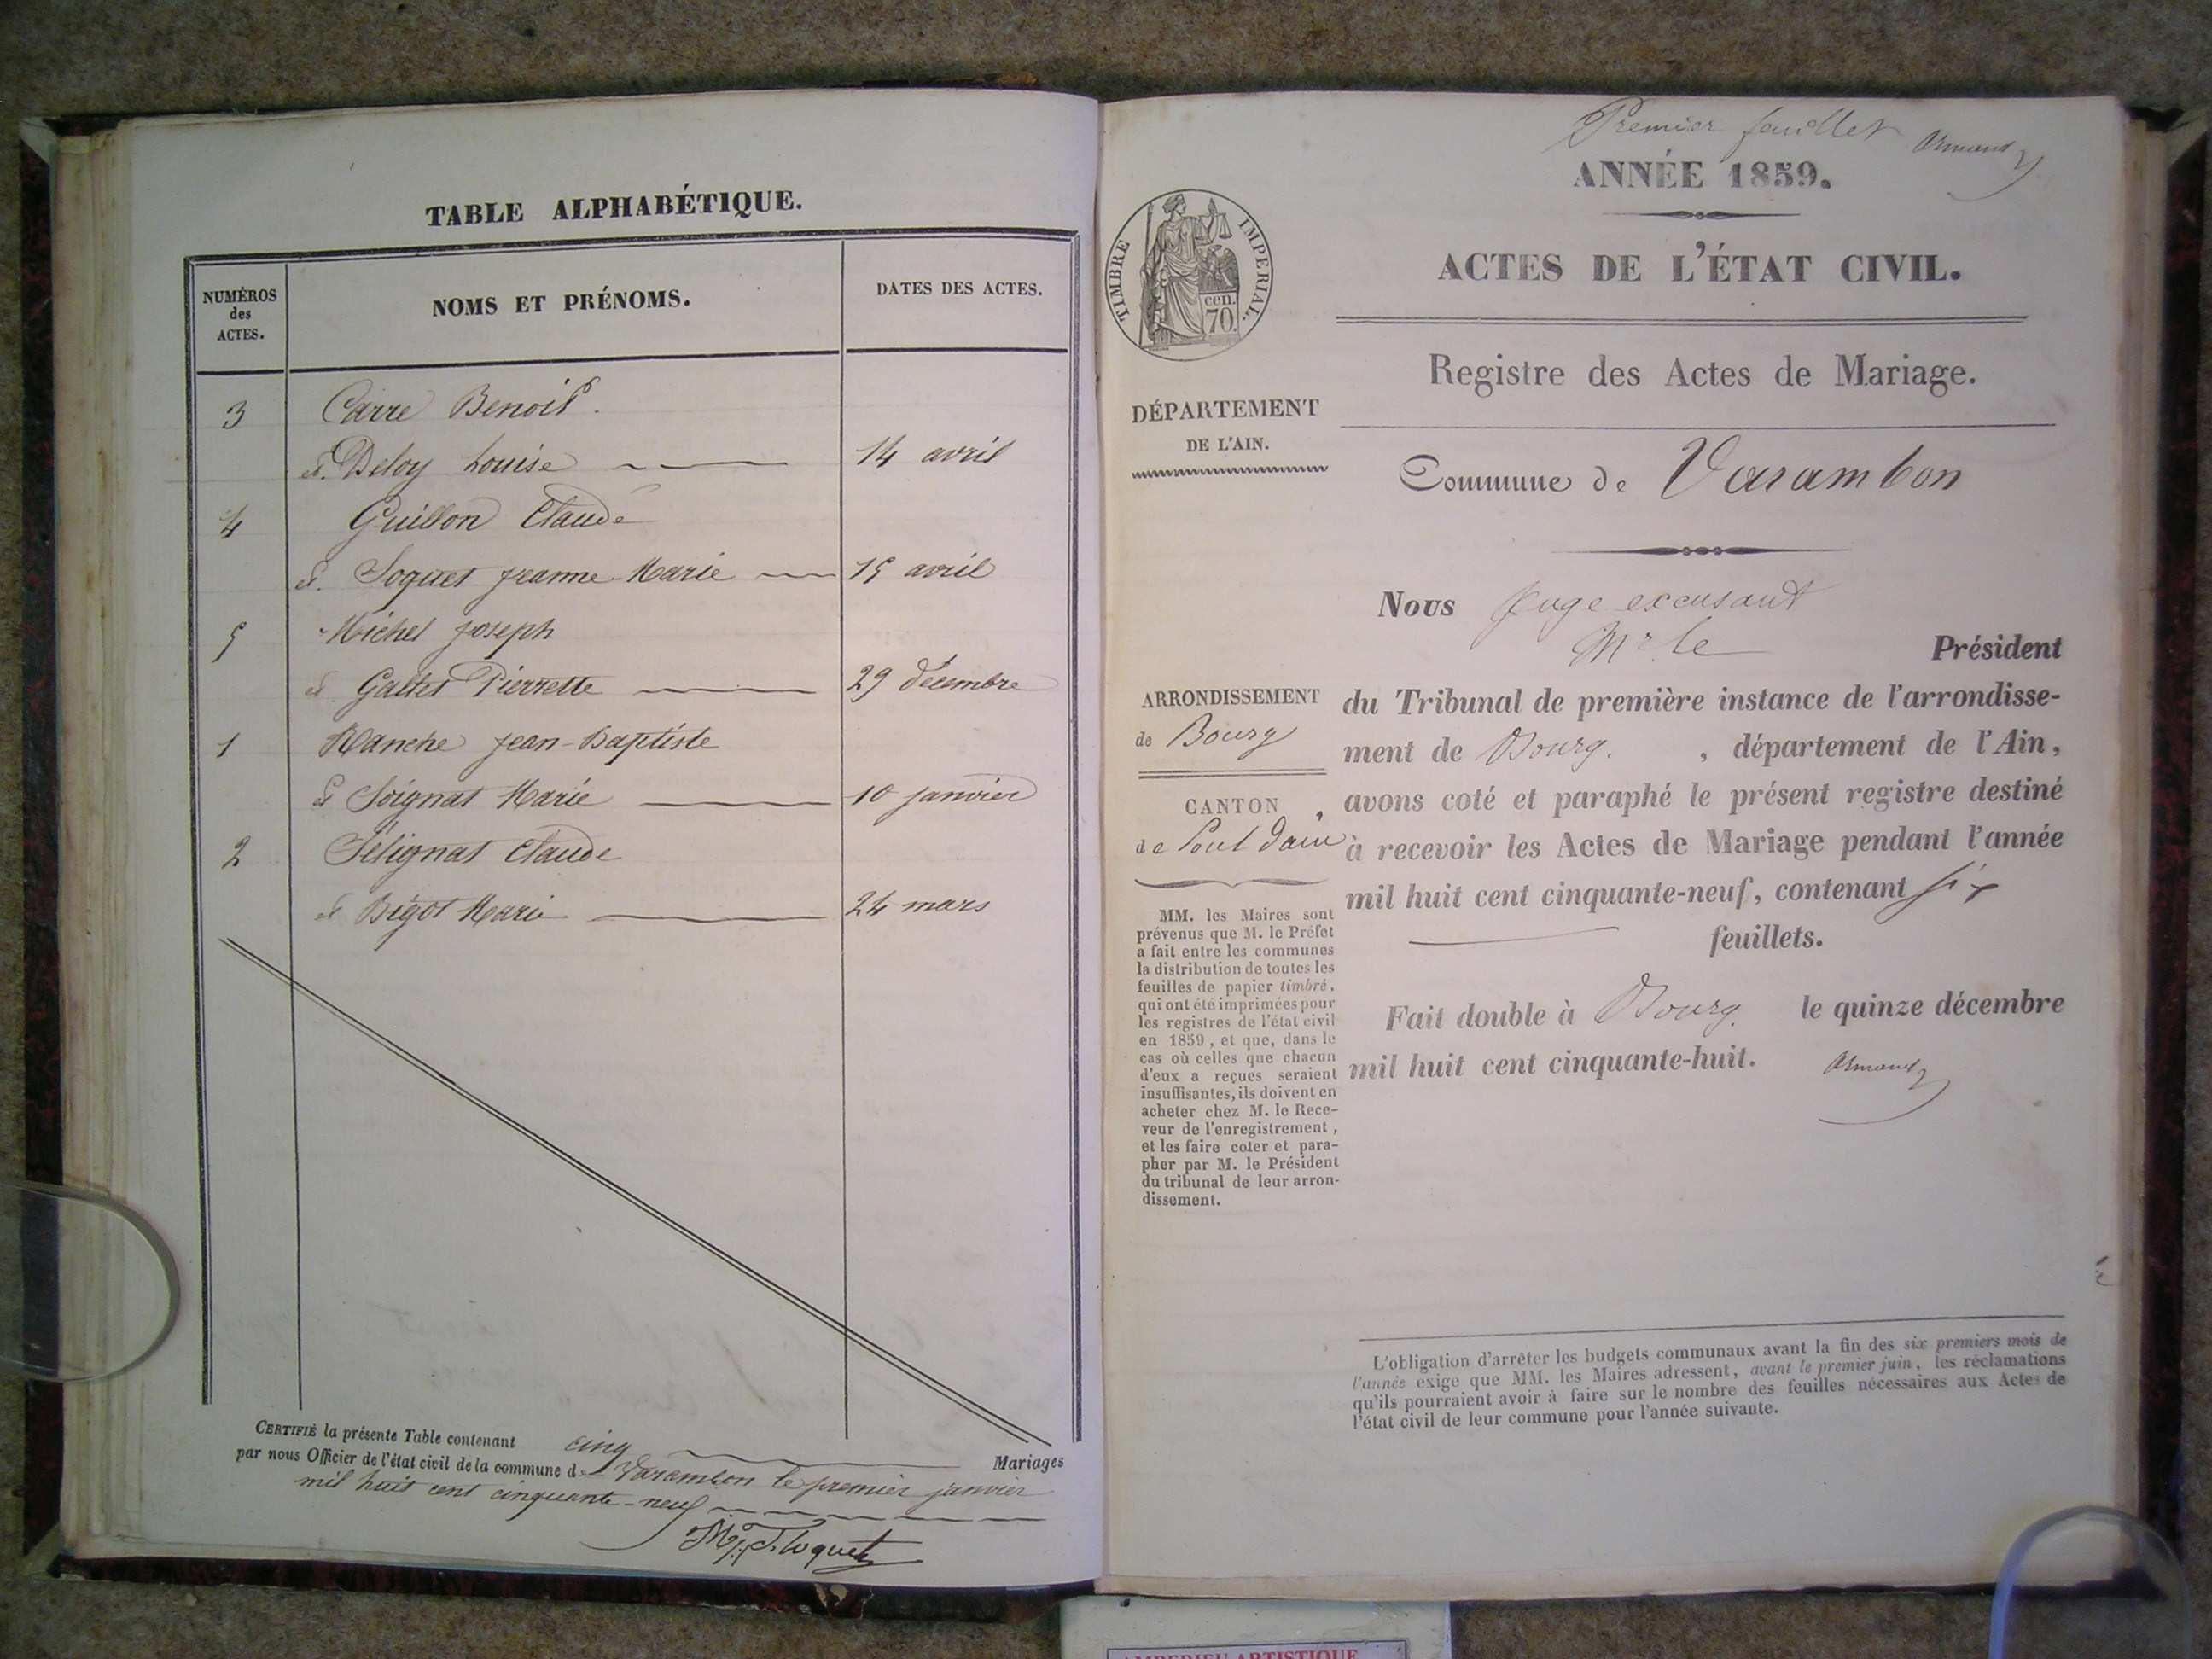 TABLE ALPHABÉTIQUE.
NUMÉROS des ACTES.
NOMS ET PRÉNOMS.
DATES DES ACTES.
3 Carre Benoit.
et Deloy Louise 14 avril
4 Guillon Claude
et Soquet Jeanne-Marie 15 avril
5 Michel Joseph
et Gallet Pierrette 29 décembre
1 Ranche Jean-Baptiste
et Soignat Marie 10 janvier
2 Sélignat Claude
et Bigot Marie 24 mars
CERTIFIÉ la présente Table contenant cinq Mariages
par nous Officier de l'état civil de la commune de Varambon le premier janvier
mil huit cent cinquante-neuf
Premier feuillet Armand
ANNÉE 1859.
ACTES DE L'ÉTAT CIVIL.
TIMBRE IMPÉRIAL.
cen.
70.
Registre des Actes de Mariage.
DÉPARTEMENT
DE L'AIN.
Commune de Varambon
Nous Juge excusant
Mr. le Président
ARRONDISSEMENT
de Bourg
CANTON
de Pont dain
du Tribunal de première instance de l'arrondisse-
ment de Bourg. , département de l'Ain,
avons coté et paraphé le présent registre destiné
à recevoir les Actes de Mariage pendant l'année
mil huit cent cinquante-neuf, contenant six
feuillets.
Fait double à Bourg. le quinze décembre
mil huit cent cinquante-huit. Armand
MM. les Maires sont
prévenus que M. le Préfet
a fait entre les communes
la distribution de toutes les
feuilles de papier timbré,
qui ont été imprimées pour
les registres de l'état civil
en 1859, et que, dans le
cas où celles que chacun
d'eux a reçues seraient
insuffisantes, ils doivent en
acheter chez M. le Rece-
veur de l'enregistrement,
et les faire coter et para-
pher par M. le Président
du tribunal de leur arron-
dissement.
L'obligation d'arrêter les budgets communaux avant la fin des six premiers mois de
l'année exige que MM. les Maires adressent, avant le premier juin, les réclamations
qu'ils pourraient avoir à faire sur le nombre des feuilles nécessaires aux Actes de
l'état civil de leur commune pour l'année suivante.
AMBERIEU ARTISTIQUE